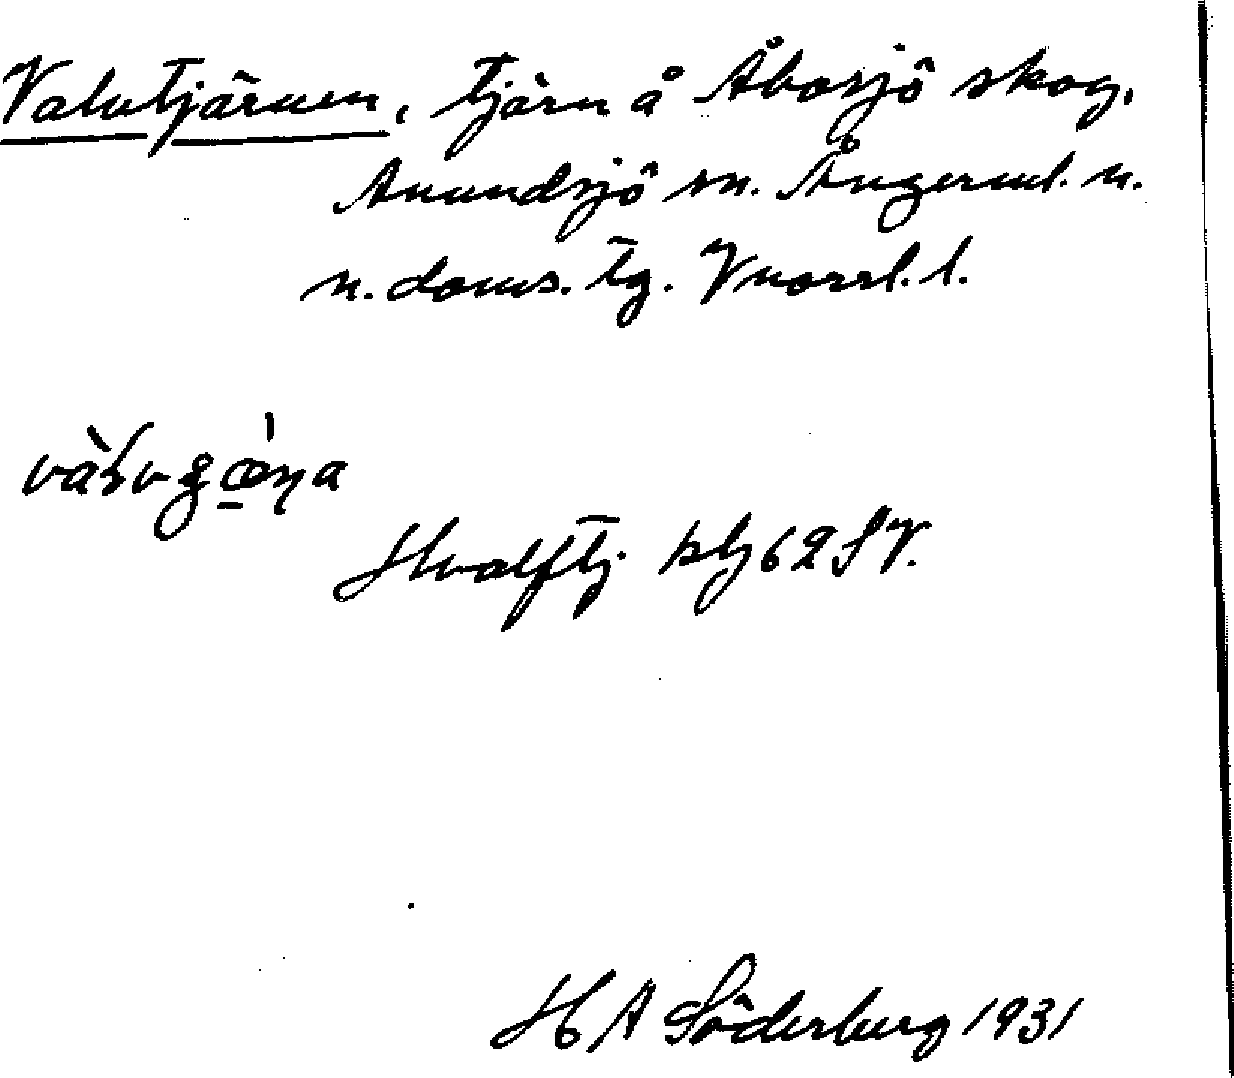 Valutjärnen, tjärn å Åbosjö skog,
Anundsjö sn. Ångerml. n.
n. doms. tg. Vnorrl. l.
Hvalftj. blg 62 SV.
H A Söderberg 1931